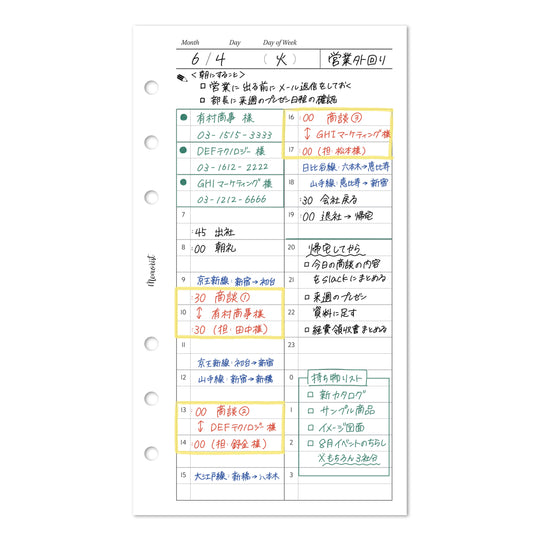 Month Day Day of Week
6/4 (火) 営業外回り
<朝にすること>
□ 営業に出る前にメール返信をしておく
□ 部長に来週のプレゼン日程の確認
有村商事 様
03-1515-3333
DEFテクノロジー 様
03-1612-2222
GHIマーケティング 様
03-1212-6666
7
:45 出社
8 :00 朝礼
9 京王新線・新宿→初台
:30 商談①
10 ↕ 有村商事様
:30 (担・田中様)
11
京王新線・初台→新宿
12 山手線・新宿→新橋
13 :00 商談②
↕ DEFテクノロジー様
14 :00 (担・様)
15 大江戸線・新橋→六本木
16 :00 商談③
↕ GHIマーケティング様
17 :00 (担・松本様)
日比谷線・六本木→恵比寿
18 山手線・恵比寿→新宿
:30 会社戻る
19 :00 退社→帰宅
20 帰宅してから
□ 今日の商談の内容
21 をslackにまとめる
□ 来週のプレゼン
22 資料に足す
□ 経費領収書まとめる
23
0 持ち物リスト
□ 新カタログ
1 □ サンプル商品
□ イメージ図面
2 □ 8月イベントのちらし
※もちろん3社分
3
Memorist